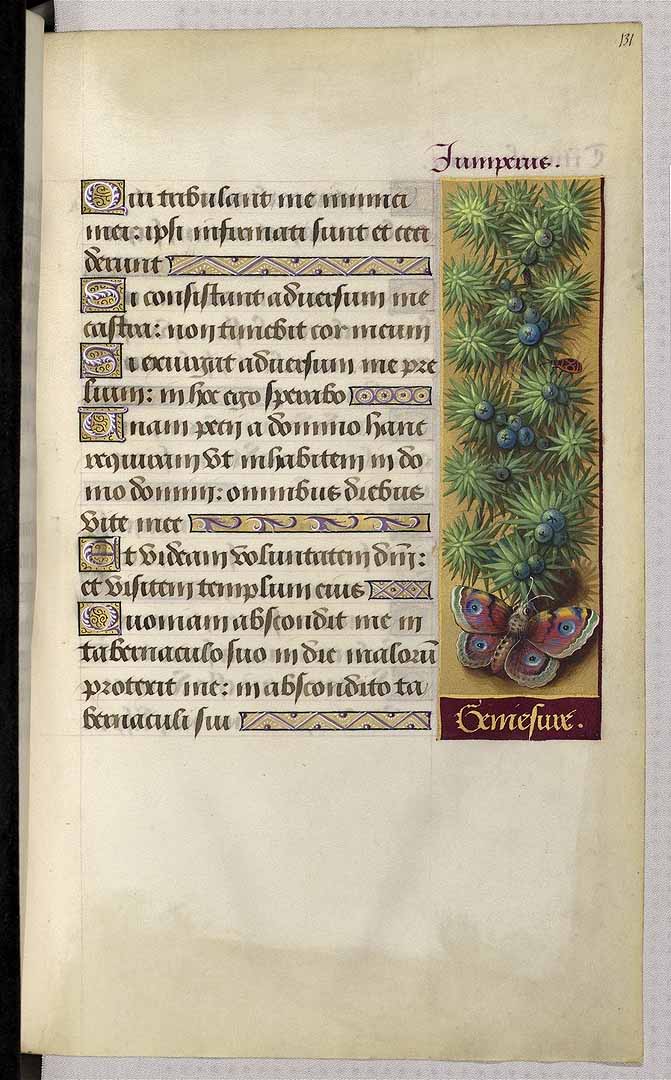 131
Juniperus.
Qui tribulant me inimici
mei: ipsi infirmati sunt et ceci
derunt
Si consistant adversum me
castra: non timebit cor meum
Si exurgat adversum me pre
lium: in hoc ego sperabo
Unam pecii a domino hanc
requiram vt inhabitem in do
mo domini: omnibus diebus
vite mee
Et videam voluntatem dn̄i:
et visitem templum eius
Quoniam abscondit me in
tabernaculo suo in die maloru̅
protexit me: in abscondito ta
bernaculi sui
Geniesure.